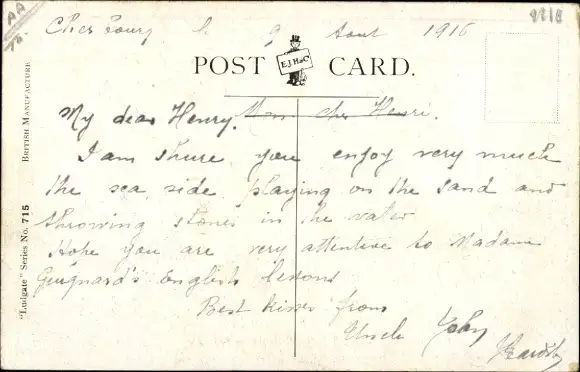 Cherbourg le 9 Aout 1916
POST CARD.
E.J.H.&C
My dear Henry. Mon cher Henri.
I am shure you enjoy very much
the sea side playing on the sand and
throwing stones in the water
Hope you are very attentive to Madame
Guignard's English lessons
Best kisses from
Uncle John
"Ludgate" Series No. 715 BRITISH MANUFACTURE